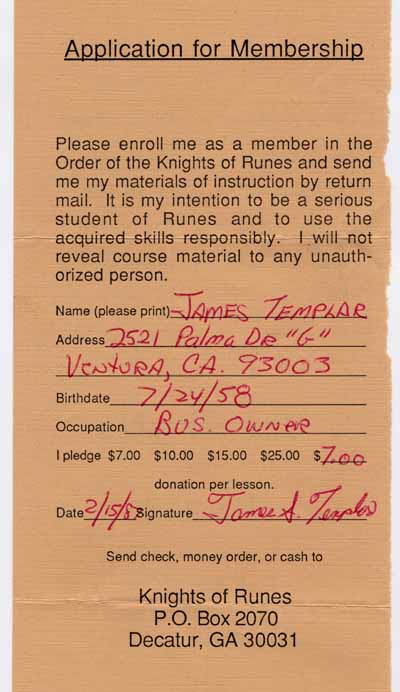 Application for Membership
Please enroll me as a member in the
Order of the Knights of Runes and send
me my materials of instruction by return
mail. It is my intention to be a serious
student of Runes and to use the
acquired skills responsibly. I will not
reveal course material to any unauth-
orized person.
Name (please print) JAMES TEMPLAR
Address 2521 Palma DR "G"
VENTURA, CA. 93003
Birthdate 7/24/58
Occupation BUS. OWNER
I pledge $7.00 $10.00 $15.00 $25.00 $7.00
donation per lesson.
Date 2/15/8 Signature James S. Templar
Send check, money order, or cash to
Knights of Runes
P.O. Box 2070
Decatur, GA 30031